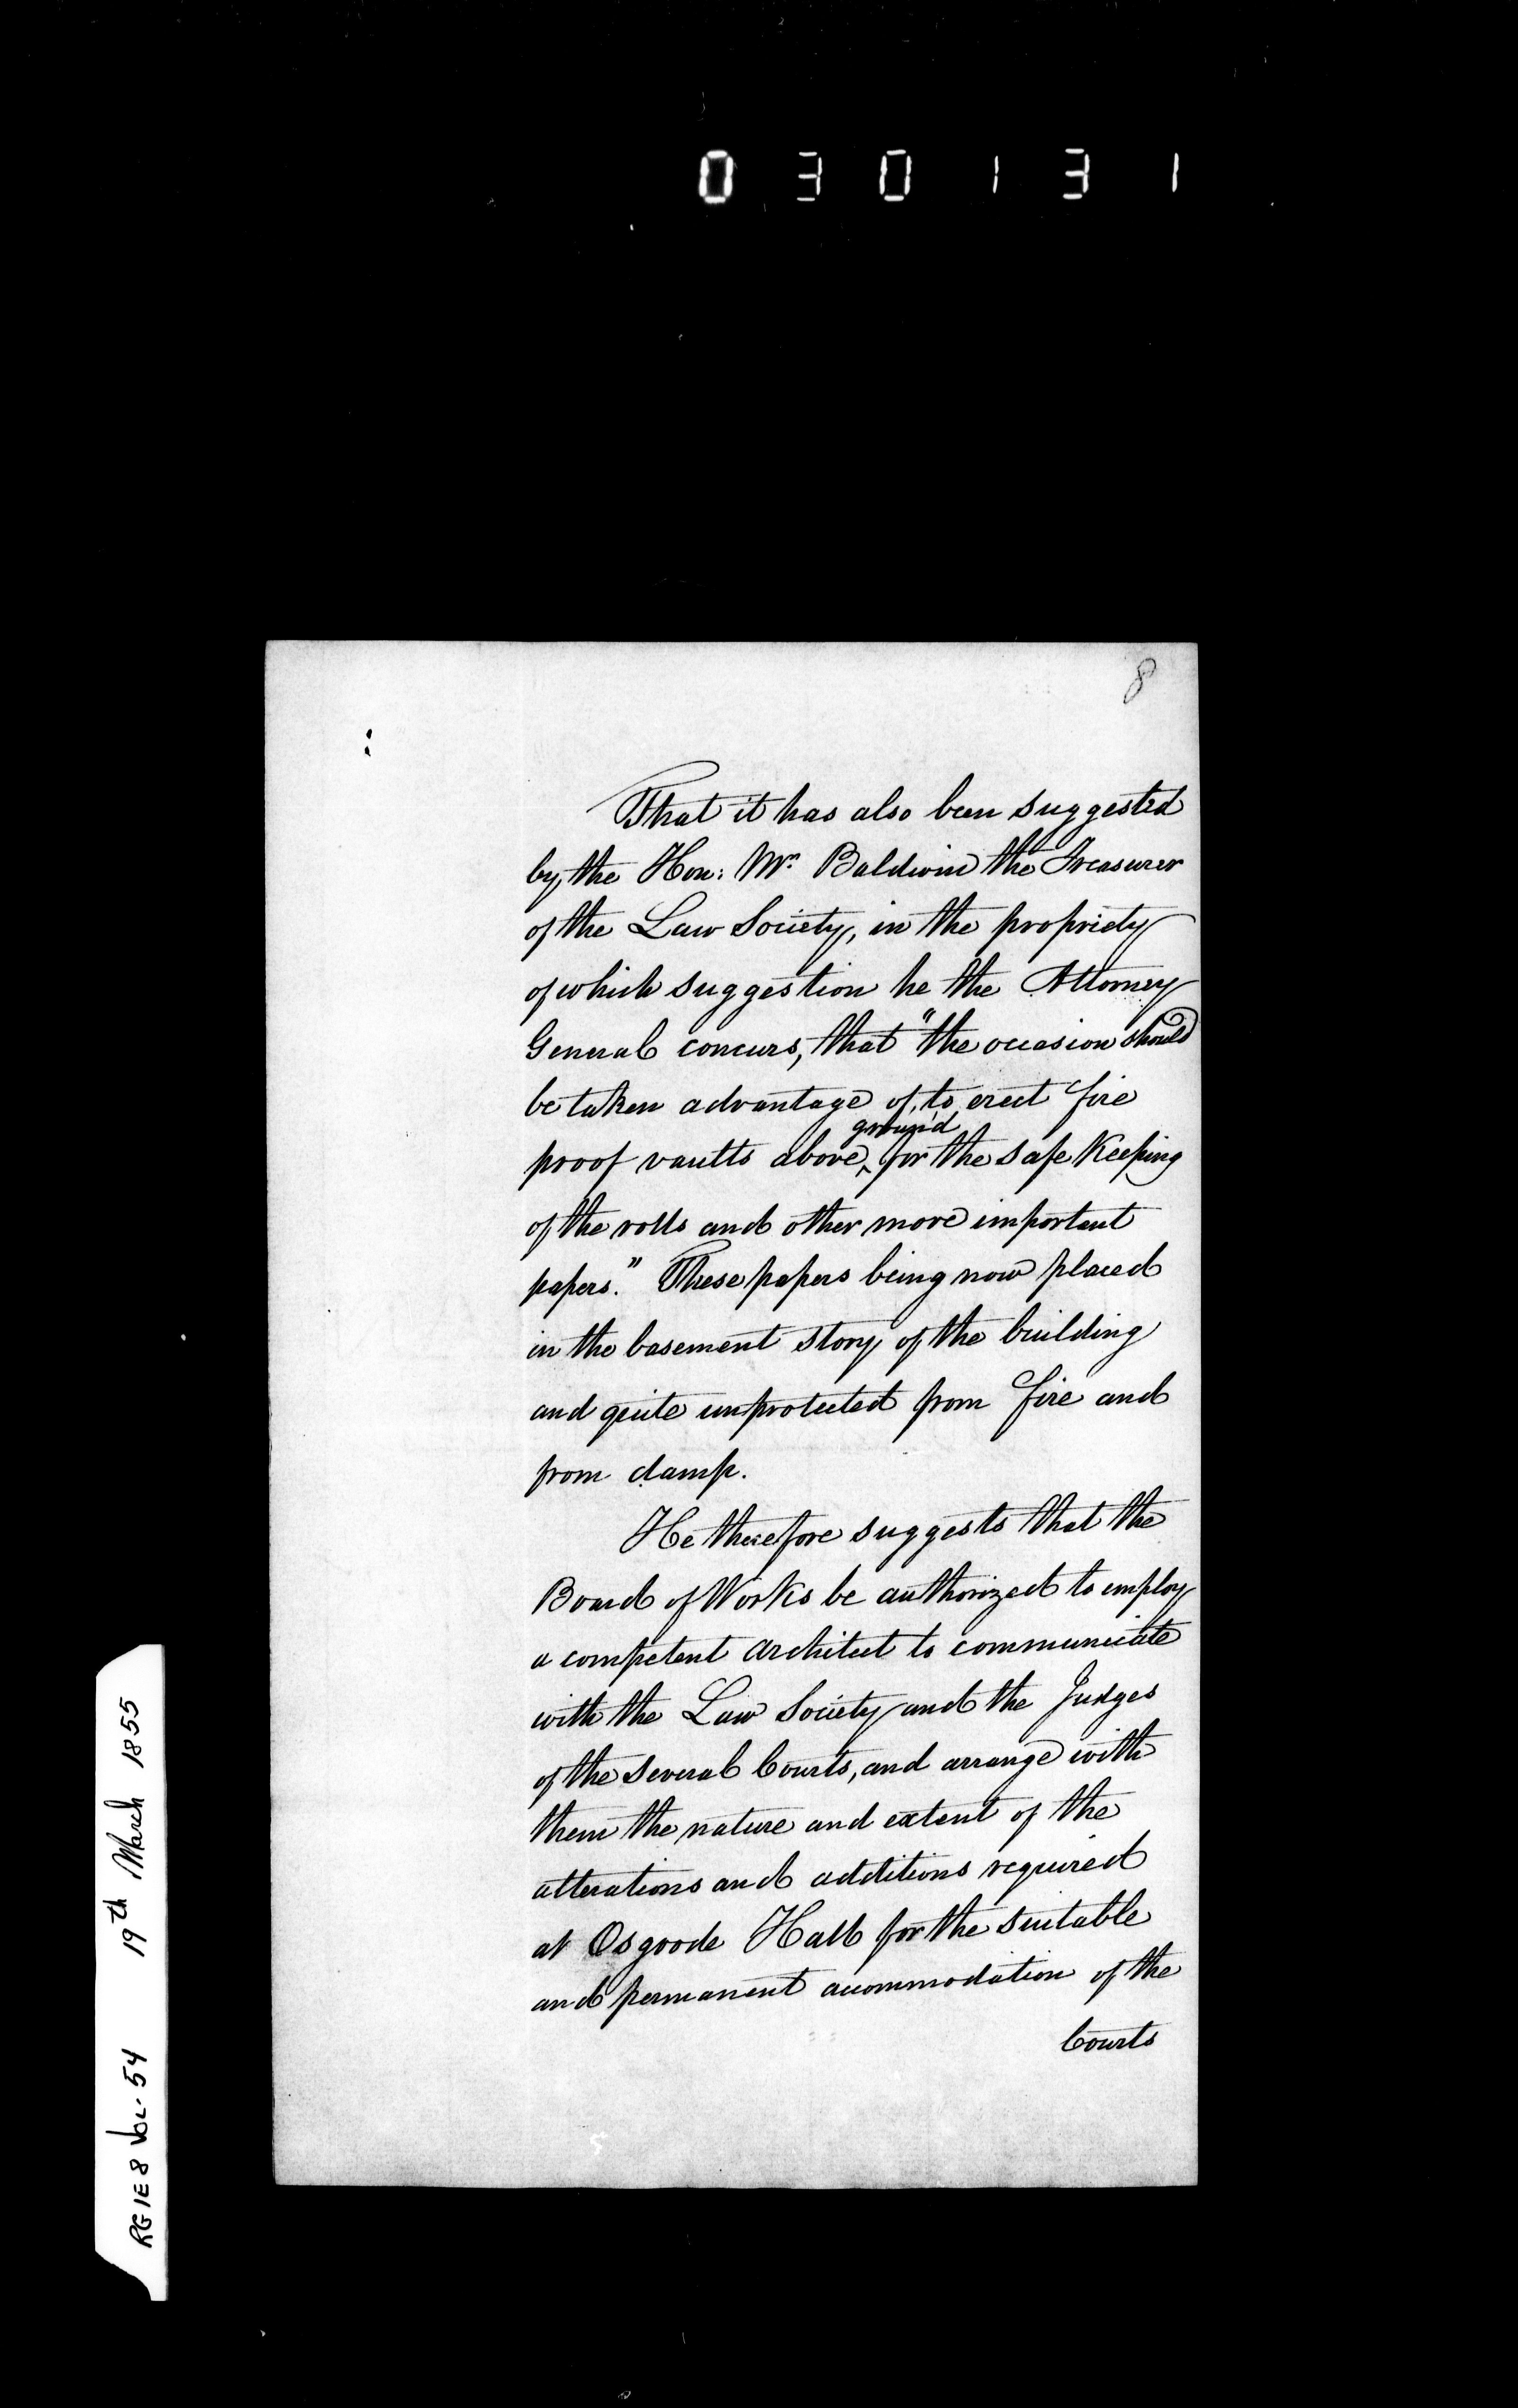 030131
8
That it has also been suggested
by the Hon: Mr. Baldwin the Treasurer
of the Law Society, in the propriety
of which suggestion he the Attorney
General concurs, that "the occasion should
be taken advantage of, to erect fire
ground
proof vaults above ‸ for the safe Keeping
of the rolls and other more important
papers." These papers being now placed
in the basement story of the building
and quite unprotected from fire and
from damp.
He therefore suggests that the
Board of Works be authorized to employ
a competent architect to communicate
with the Law Society and the Judges
of the several Courts, and arrange with
them the nature and extent of the
alterations and additions required
at Osgoode Hall for the suitable
and permanent accommodation of the
Courts
RG 1 E 8 Vol. 54 19th March 1855